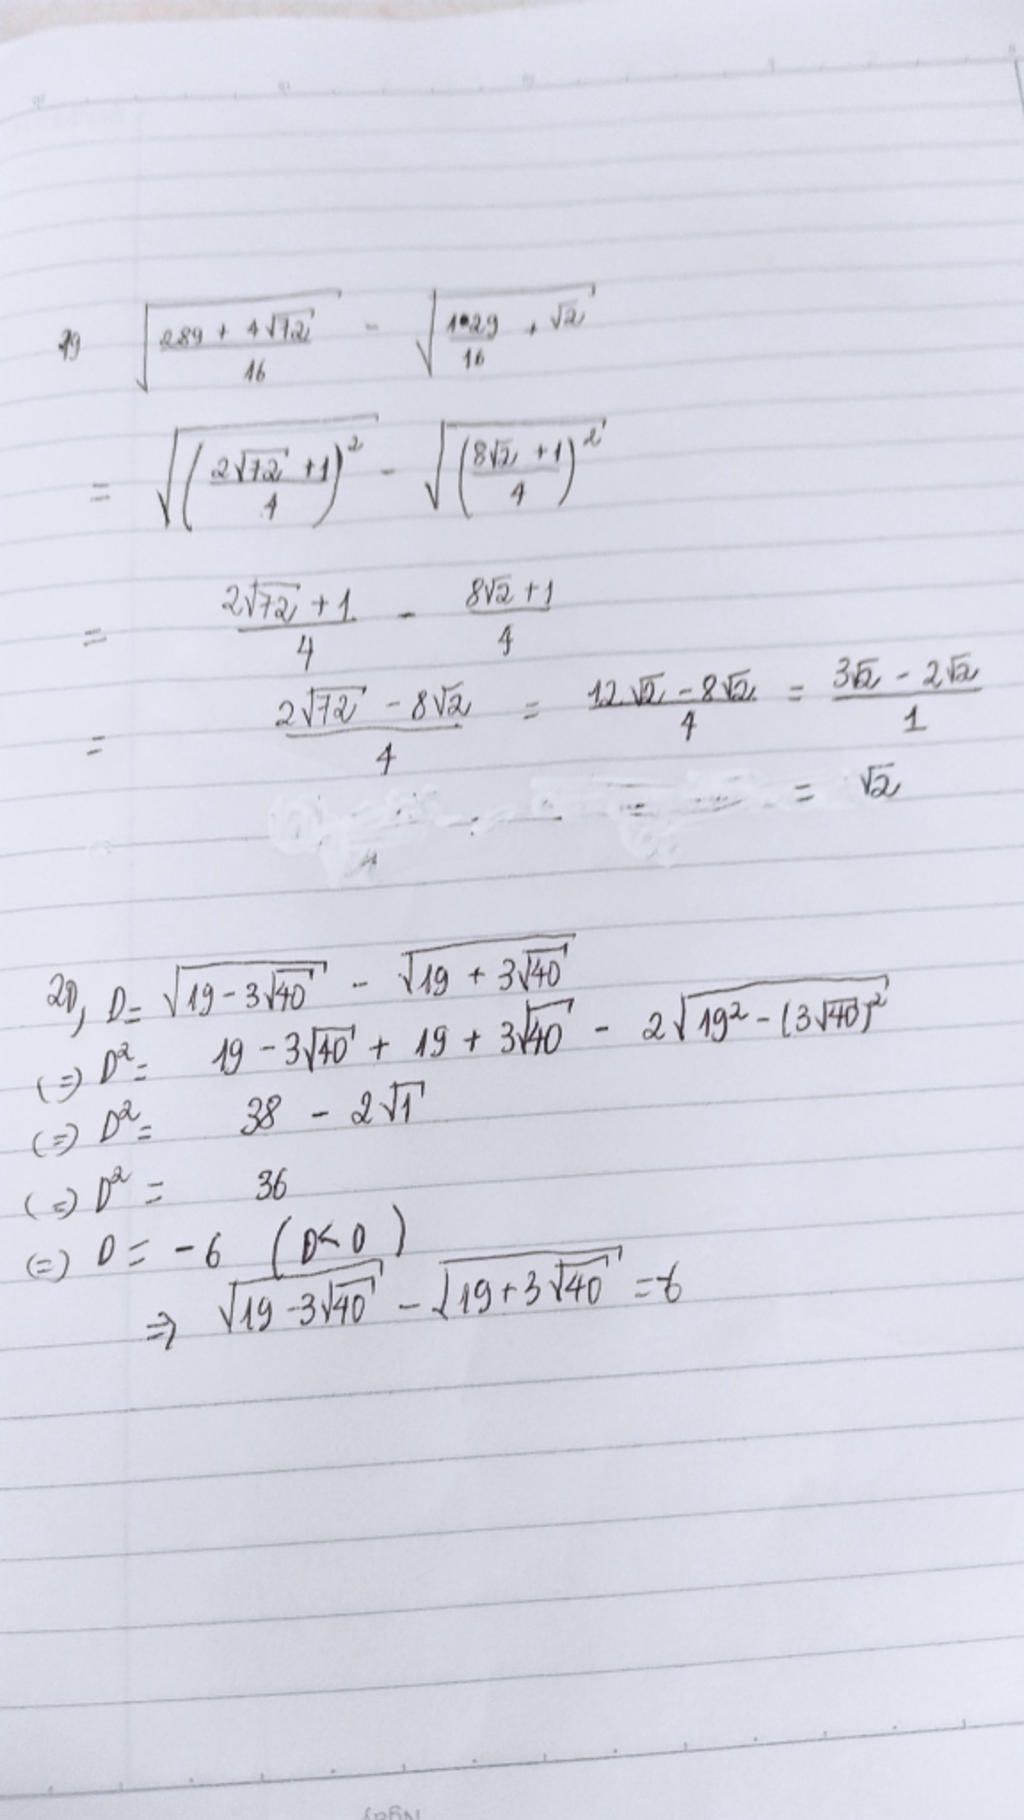 19 √((289 + 4√72)/16) - √(129/16 + √2)
= √(((2√72 + 1)/4)²) - √(((8√2 + 1)/4)²)
= (2√72 + 1)/4 - (8√2 + 1)/4
= (2√72 - 8√2)/4 = (12√2 - 8√2)/4 = (3√2 - 2√2)/1
= √2
20, D = √(19 - 3√40) - √(19 + 3√40)
(=) D² = 19 - 3√40 + 19 + 3√40 - 2√(19² - (3√40)²)
(=) D² = 38 - 2√1
(=) D² = 36
(=) D = -6 (D < 0)
⇒ √(19 - 3√40) - √(19 + 3√40) = -6
Ngày